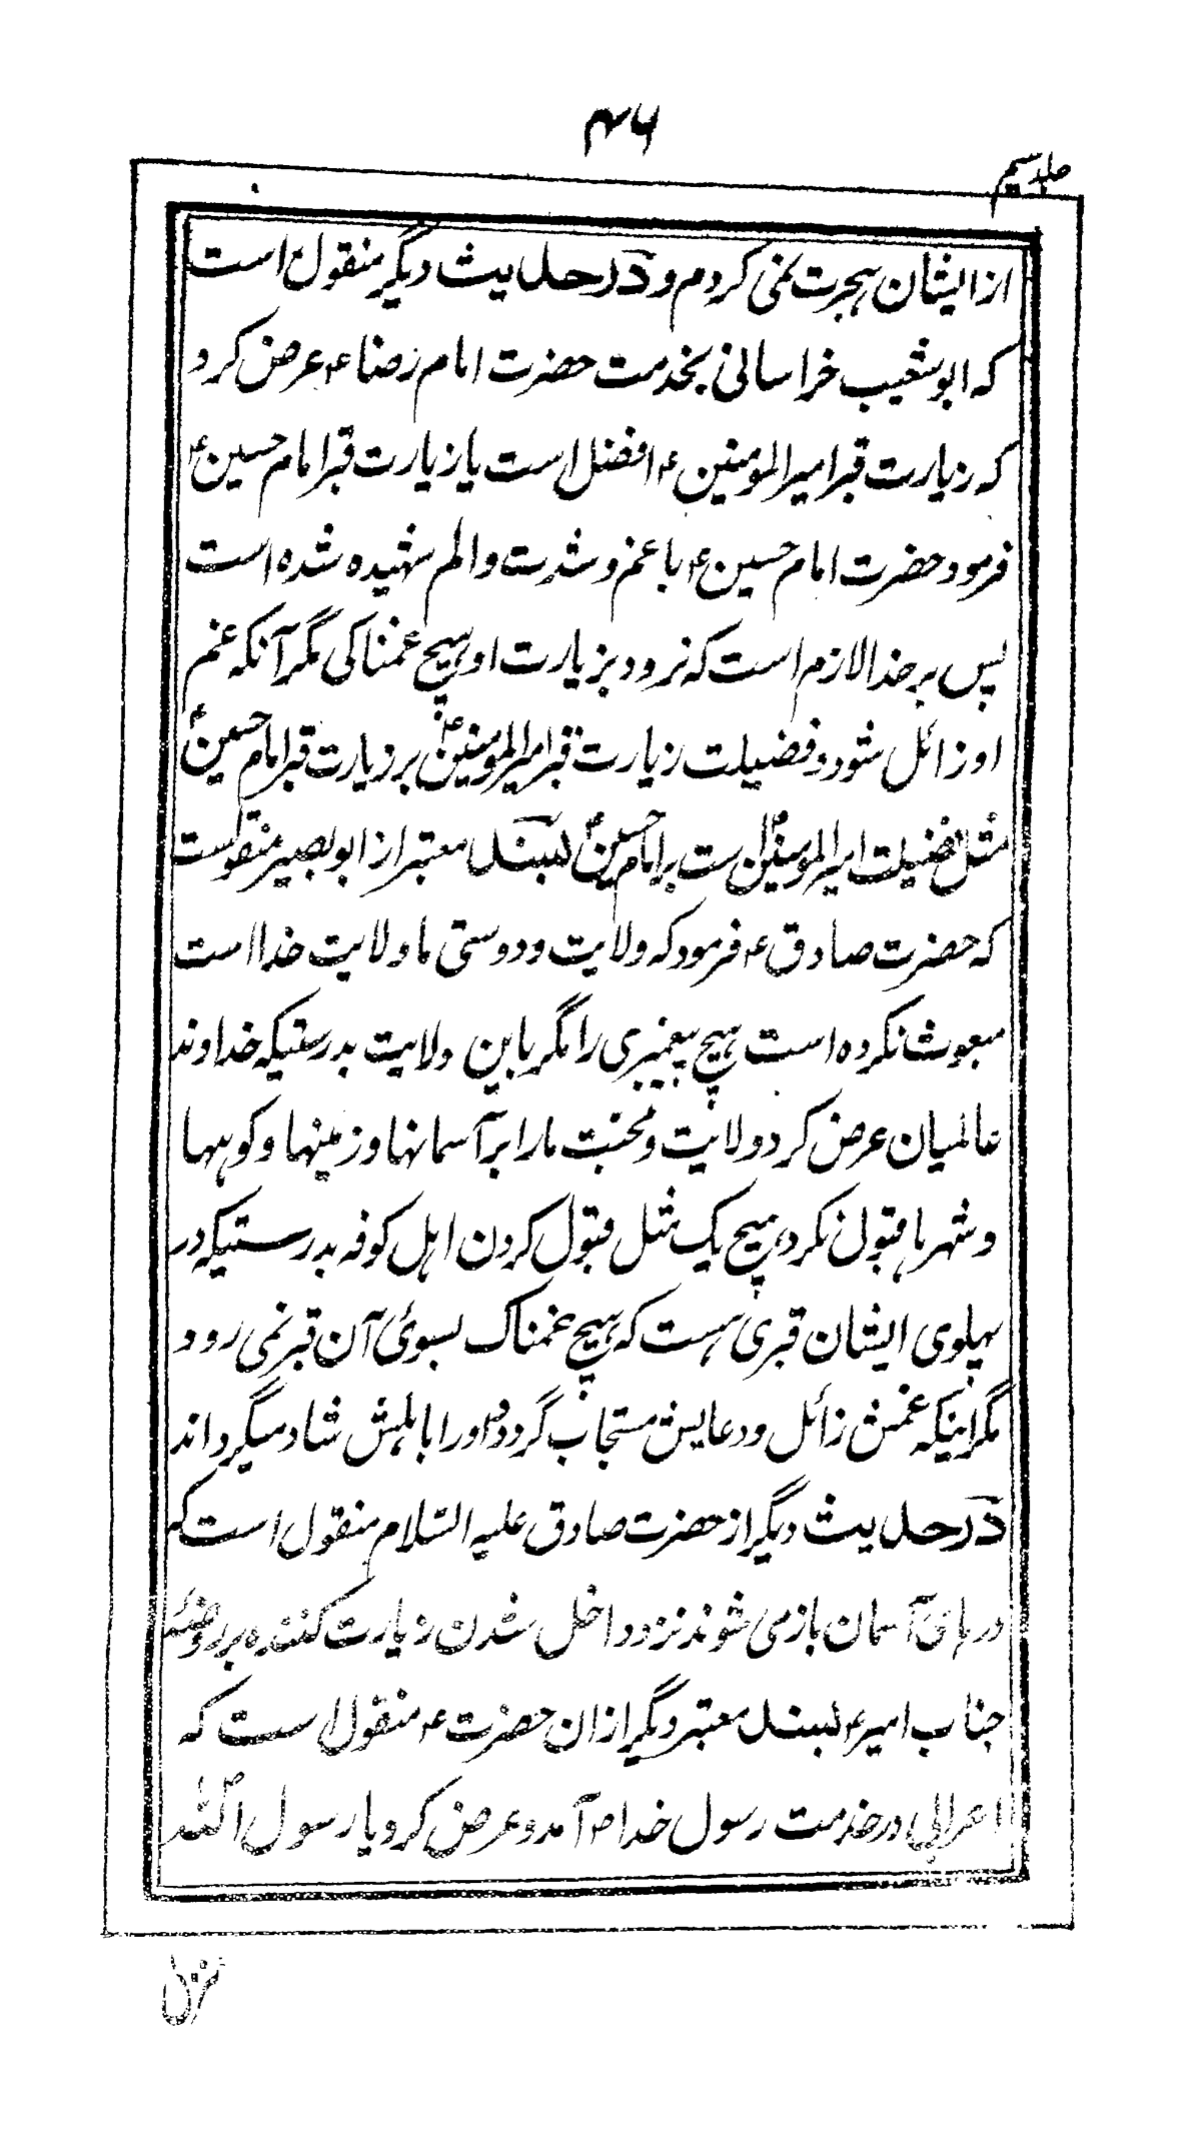 ۴۶
جلد سیم
از ایشان هجرت نمی کردم و در حدیث دیگر منقول است
که ابو شعیب خراسانی بخدمت حضرت امام رضا ؑ عرض کرد
که زیارت قبر امیر المومنین ؑ افضل است یا زیارت قبر امام حسین ؑ
فرمود حضرت امام حسین ؑ با غم و شدت و الم شهیده شده است
پس بر خدا لازم است که نرود بزیارت او هیچ غمناکی مگر آنکه غم
او زائل شود و فضیلت زیارت قبر امیر المومنین ؑ بر زیارت قبر امام حسین ؑ
مثل فضیلت امیر المومنین ؑ است بر امام حسین ؑ بسند معتبر از ابو بصیر منقولست
که حضرت صادق ؑ فرمود که ولایت و دوستی ما ولایت خدا است
مبعوث نکرده است هیچ پیغمبری را مگر باین ولایت بدرستیکه خداوند
عالمیان عرض کرد ولایت و محبت ما را بر آسمانها و زمینها و کوهها
و شهرها قبول نکرد هیچ یک مثل قبول کردن اهل کوفه بدرستیکه در
پهلوی ایشان قبری هست که هیچ غمناک بسوئ آن قبر نمی رود
مگر اینکه غمش زائل و دعایش مستجاب گردد و او را با هلش شاد میگرداند
در حدیث دیگر از حضرت صادق علیه السّلام منقول است که
درهای آسمان باز می شوند نزد داخل شدن زیارت کننده بر روضۀ
جناب امیر ؑ بسند معتبر دیگر از ان حضرت ؑ منقول است که
اعرابی در خدمت رسول خدا ؐ آمد و عرض کرد یا رسول اللّه ؐ
منزل